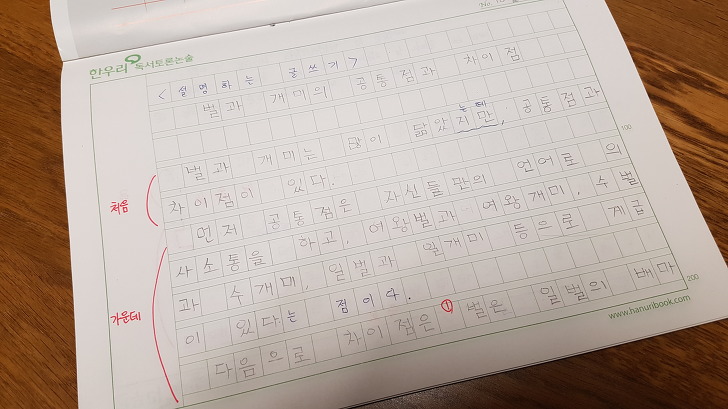 No. 10
한우리 독서토론논술
<설명하는 글쓰기>
벌과 개미의 공통점과 차이점
는데
벌과 개미는 많이 닮았지만, 공통점과
100
처음
차이점이 있다.
먼저 공통점은 자신들만의 언어로 의
사소통을 하고, 여왕벌과 여왕개미, 수벌
과 수개미, 일벌과 일개미 등으로 계급
가운데
이 있다는 점이다.
200
다음으로 차이점은 ① 벌은 일벌의 배마
www.hanuribook.com